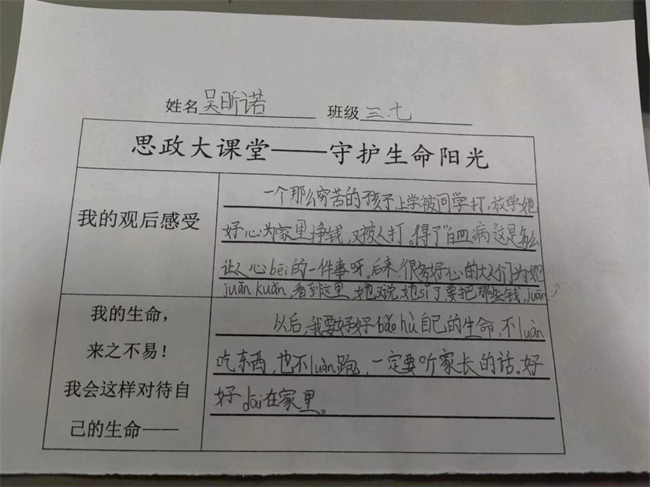 姓名吴昕诺 班级三.七
思政大课堂——守护生命阳光
我的观后感受
一个那么穷苦的孩子上学被同学打,放学她
好心为家里挣钱,又被人打。得了白血病这是多么
让人心bēi的一件事呀。后来很多好心的大人们为她
juān kuǎn,看到这里,她又说,她sǐ了要把那些钱,juān
我的生命,
来之不易!
我会这样对待自
己的生命——
以后,我要好好bǎo hù自己的生命,不luàn
吃东西,也不luàn跑,一定要听家长的话。好
好dāi在家里。